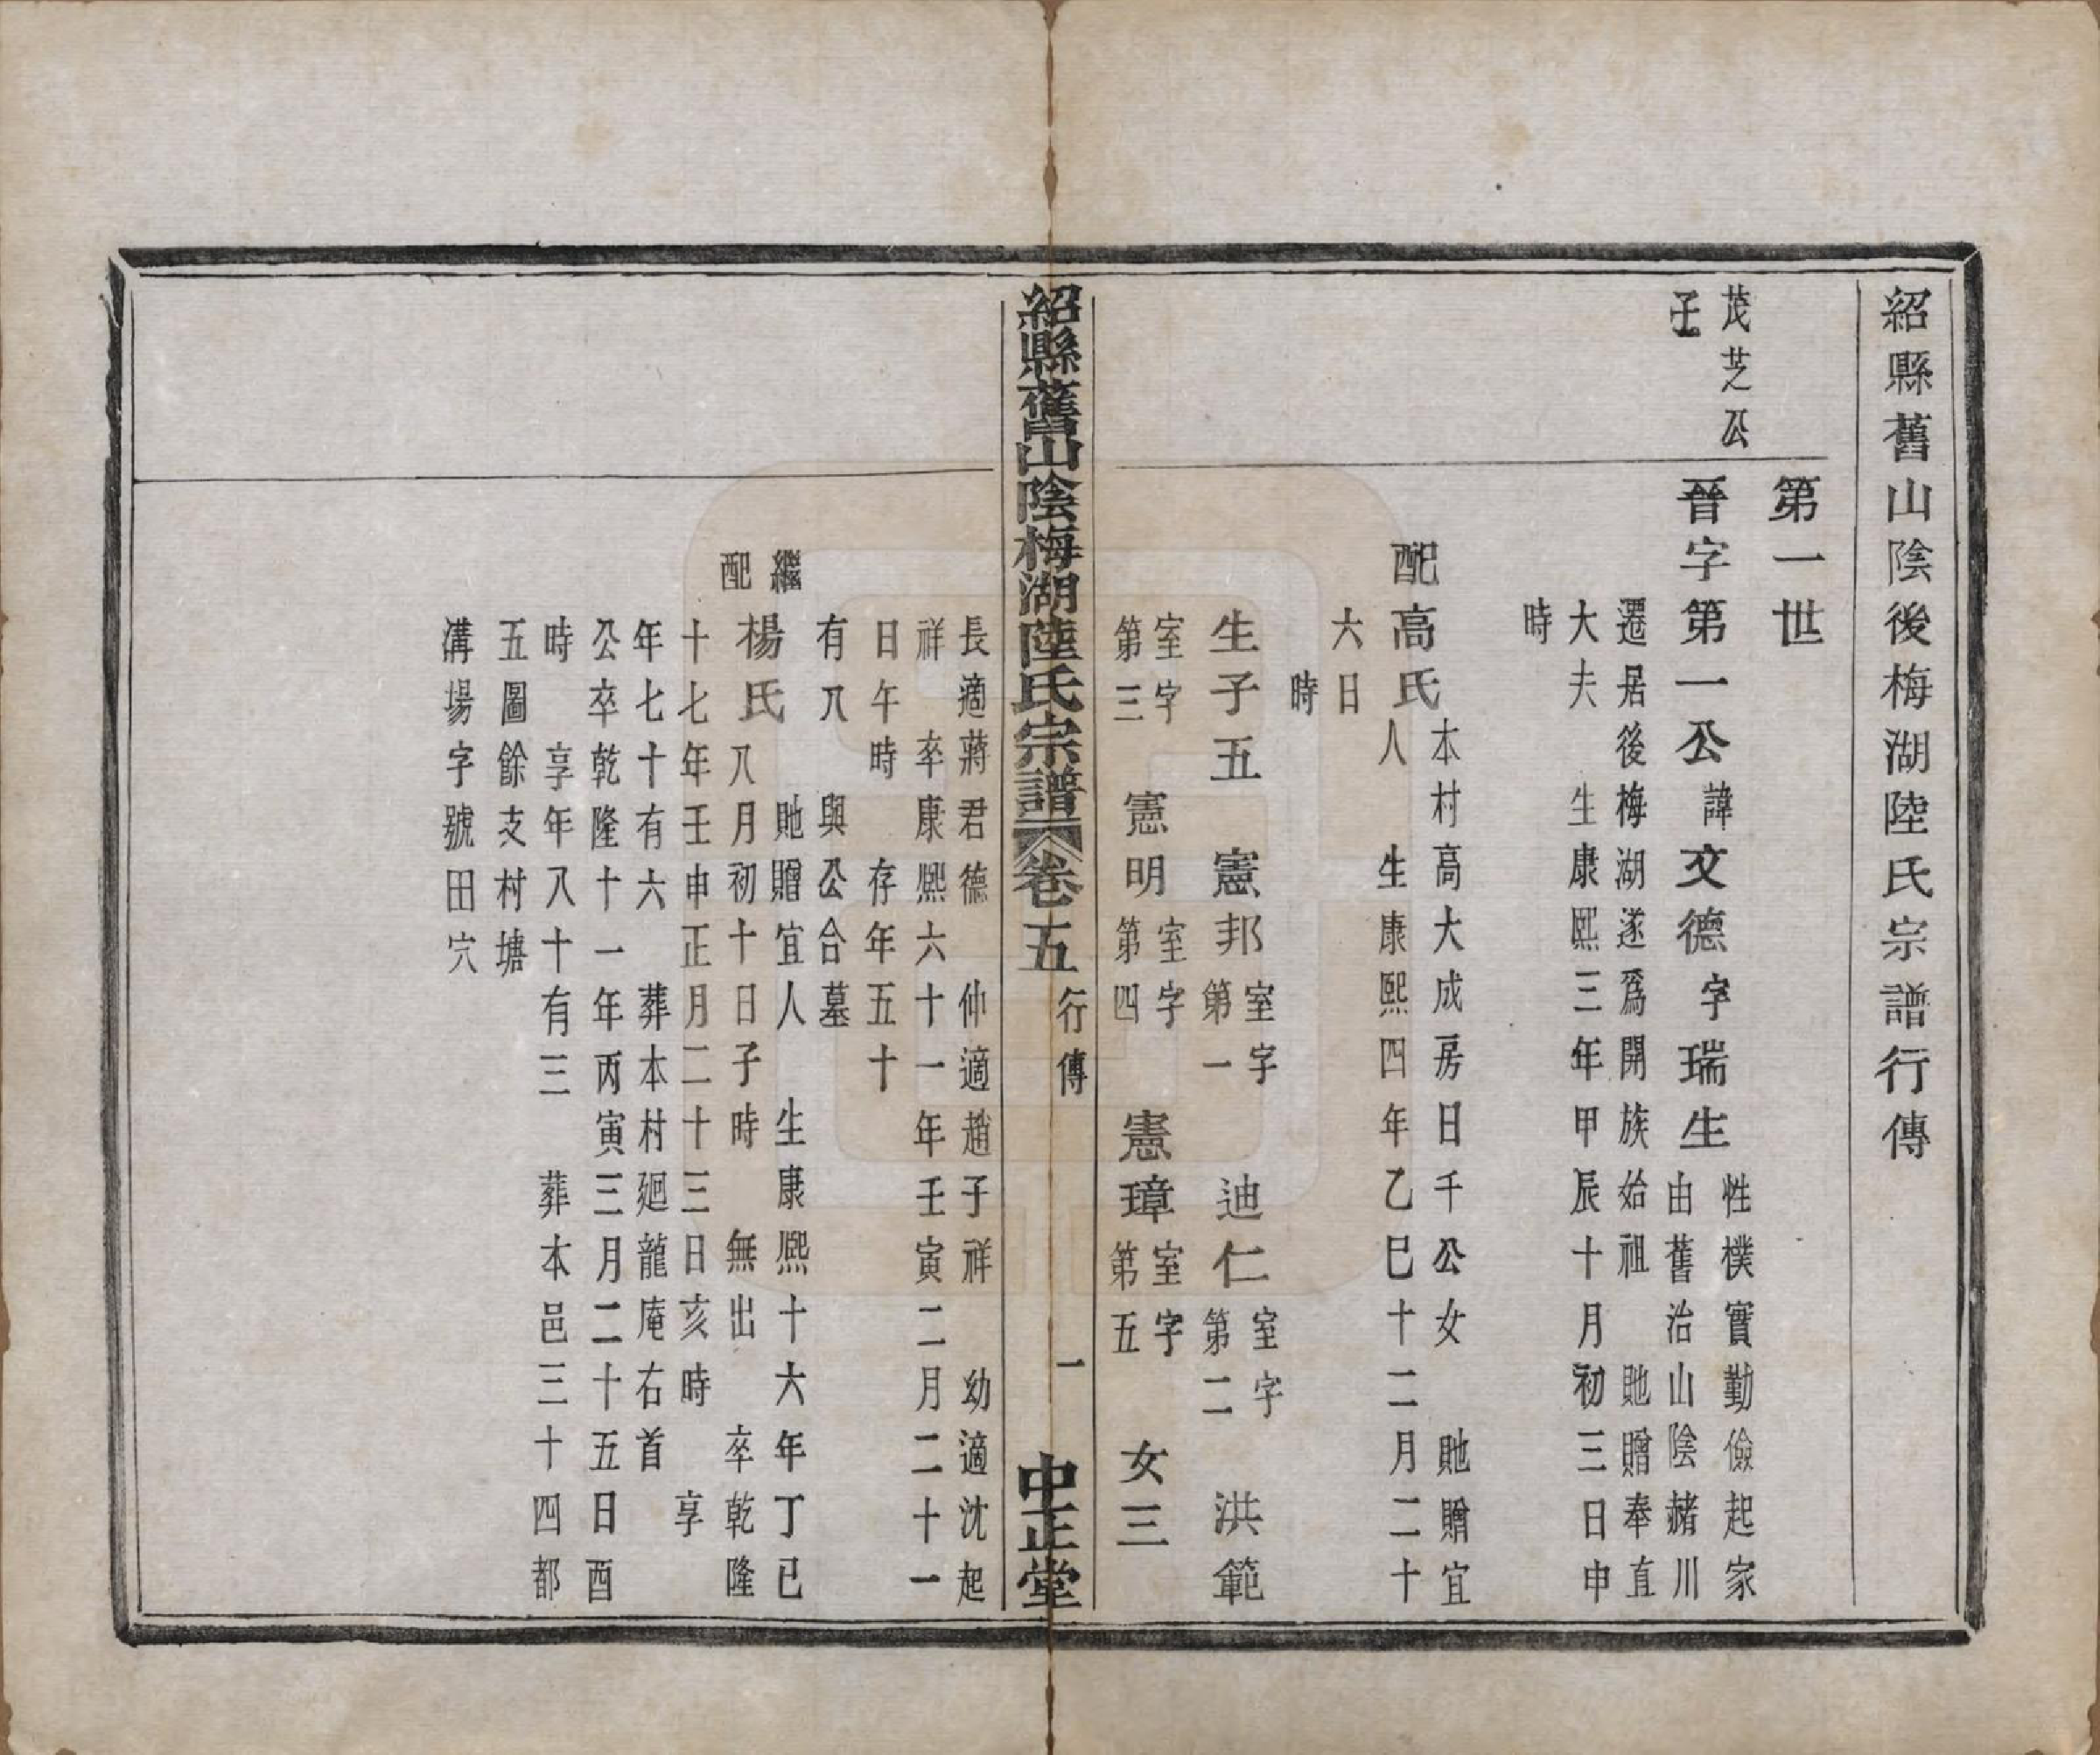 紹縣舊山陰後梅湖陸氏宗譜行傳
第一世
茂芝公
子
晉字第一公諱文德字瑞生
性樸實勤儉起家
由舊治山陰赭川
遷居後梅湖遂爲開族始祖　貤贈奉直
大夫　生康熙三年甲辰十月初三日申
時
配高氏
本村高大成房日千公女　貤贈宜
人　生康熙四年乙巳十二月二十
六日
時
生子五　憲邦室字第一　迪仁室字第二　洪範
室字第三　憲明室字第四　憲璋室字第五　女三
紹縣舊山陰梅湖陸氏宗譜　卷五　行傳　一　中正堂
長適蔣君德　仲適趙子祥　幼適沈起
祥　卒康熙六十一年壬寅二月二十一
日午時　存年五十
有八　與公合墓
繼配楊氏
貤贈宜人　生康熙十六年丁巳
八月初十日子時　無出　卒乾隆
十七年壬申正月二十三日亥時　享
年七十有六　葬本村廻龍庵右首
公卒乾隆十一年丙寅三月二十五日酉
時　享年八十有三　葬本邑三十四都
五圖餘支村塘
溝場字號田穴